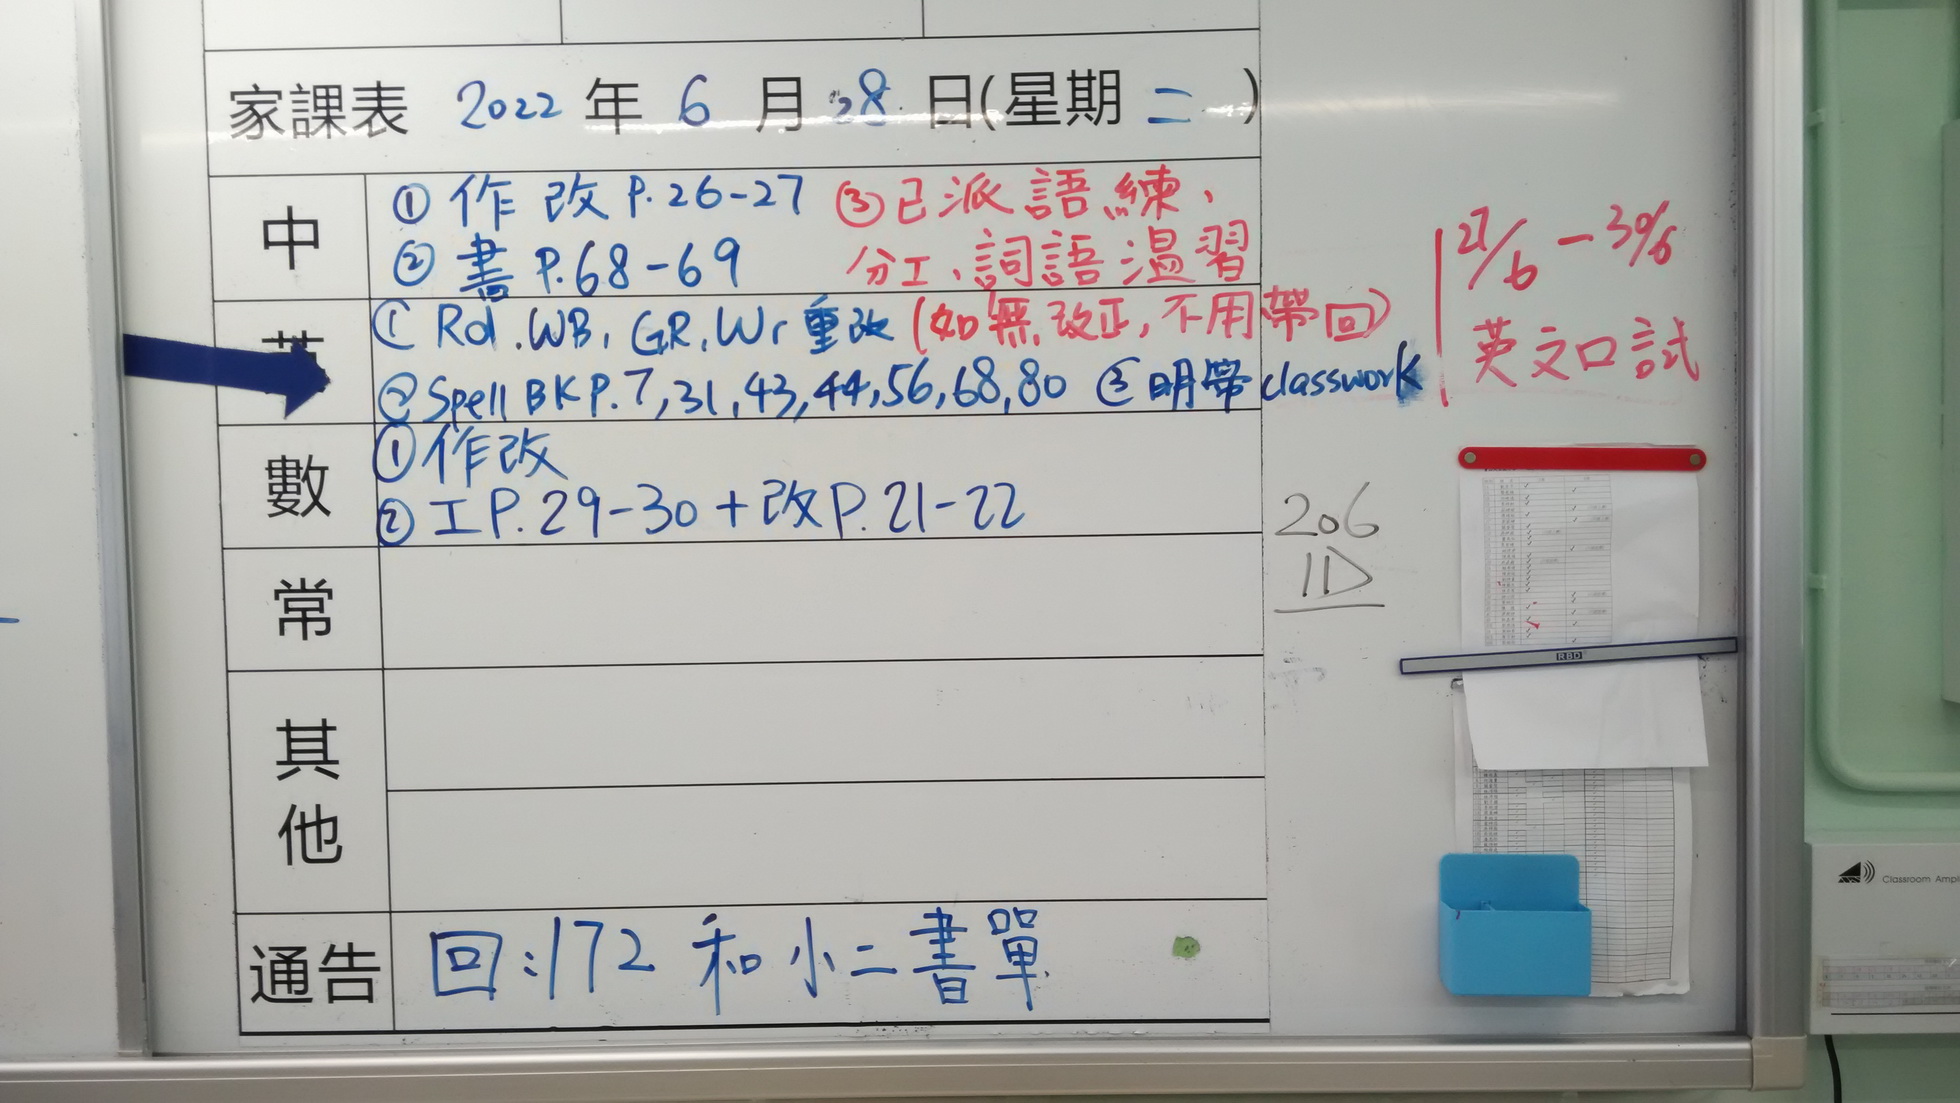 家課表 2022 年 6 月 28 日(星期 二 )
中
① 作 改 P.26-27 ③已派語練、
② 書 P.68-69 分工、詞語溫習
英
① Rd.WB, GR.Wr 重改 (如無改正,不用帶回)
② Spell BK P.7,31,43,44,56,68,80 ③ 明帶classwork
數
①作改
② 工 P.29-30+改P.21-22
常
其他
通告
回:172 和小二書單
27/6 - 30/6
英文口試
206
1D
RBD
Classroom Ampl